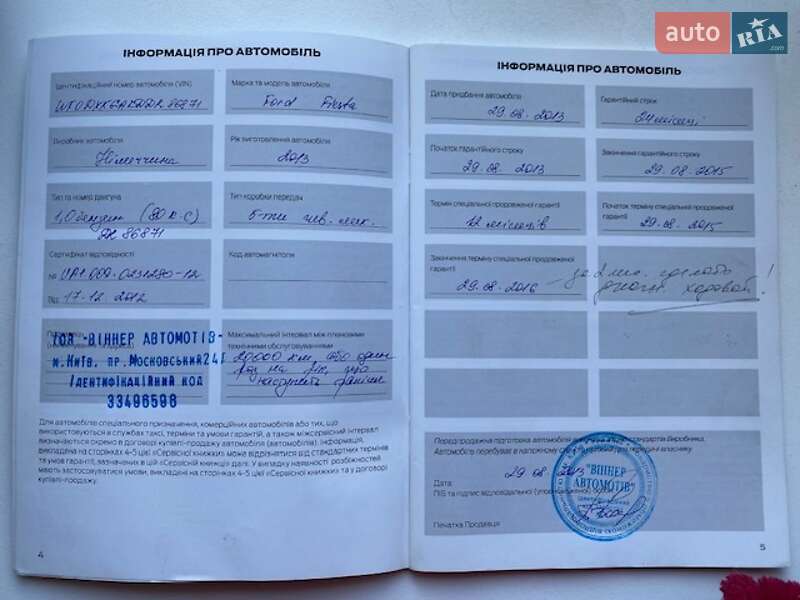 auto RIA .com
ІНФОРМАЦІЯ ПРО АВТОМОБІЛЬ
Ідентифікаційний номер автомобіля (VIN)
Марка та модель автомобіля
Ford Fiesta
Виробник автомобіля
Німеччина
Рік виготовлення автомобіля
2013
Тип та номер двигуна
1,0 бензин (80 к.с)
86871
Тип коробки передач
5-ти мех.
Сертифікат відповідності
№ UA1.009.0231280-12
Від 17.12.2012
Код автомагнітоли
ТОВ "ВІННЕР АВТОМОТІВ"
м.Київ, пр.Московський 24Г
Ідентифікаційний код
33496598
Максимальний інтервал між плановими
технічними обслуговуваннями
20000 км, або один
раз на рік, що
наступить раніше
Для автомобілів спеціального призначення, комерційних автомобілів або тих, що
використовуються в службах таксі, терміни та умови гарантій, а також міжсервісний інтервал
визначаються окремо в договорі купівлі-продажу автомобіля (автомобілів). Інформація,
викладена на сторінках 4-5 цієї «Сервісної книжки» може відрізнятися від стандартних термінів
та умов гарантій, зазначених в цій «Сервісної книжки» далі. У випадку наявності розбіжностей
мають застосовуватися умови, викладені на сторінках 4-5 цієї «Сервісної книжки» та у договорі
купівлі-продажу.
4
ІНФОРМАЦІЯ ПРО АВТОМОБІЛЬ
Дата продбання автомобіля
29.08.2013
Гарантійний строк
24 місяці
Початок гарантійного строку
29.08.2013
Закінчення гарантійного строку
29.08.2015
Термін спеціальної продовженої гарантії
12 місяців
Початок терміну спеціальної продовженої
гарантії
29.08.2015
Закінчення терміну спеціальної продовженої
гарантії
29.08.2016
за 2 сделать
ходовой!
Передпродажна підготовка автомобіля стандартів Виробника.
Автомобіль перебуває в належному власнику.
29.08.2013
Дата
ПІБ та підпис відповідальної (уповноваженої)
Печатка Продавця
"ВІННЕР
АВТОМОТІВ"
5